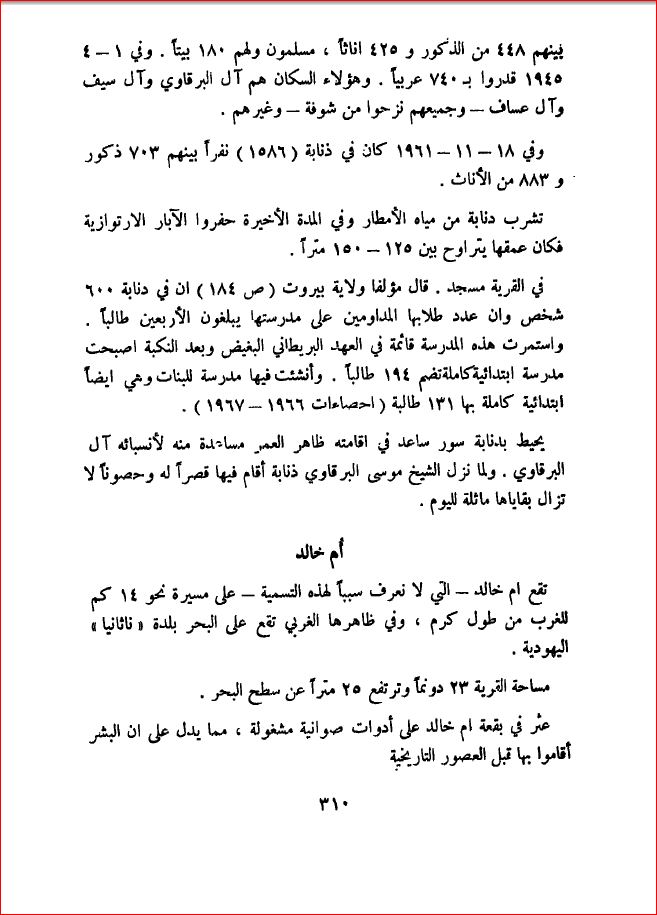 بينهم ٤٤٨ من الذكور و ٤٢٥ اناثاً ، مسلمون ولهم ١٨٠ بيتاً . وفي ١ – ٤
١٩٤٥ قدروا بـ ٧٤٠ عربياً . وهؤلاء السكان هم آل البرقاوي وآل سيف
وآل عساف – وجميعهم نزحوا من شوفة – وغيرهم .
وفي ١٨ – ١١ – ١٩٦١ كان في ذنابة ( ١٥٨٦ ) نفراً بينهم ٧٠٣ ذكور
و ٨٨٣ من الأناث .
تشرب دنابة من مياه الأمطار وفي المدة الأخيرة حفروا الآبار الارتوازية
فكان عمقها يتراوح بين ١٢٥ – ١٥٠ متراً .
في القرية مسجد . قال مؤلفا ولاية بيروت ( ص ١٨٤ ) ان في دنابة ٦٠٠
شخص وان عدد طلابها المداومين على مدرستها يبلغون الأربعين طالباً .
واستمرت هذه المدرسة قائمة في العهد البريطاني البغيض وبعد النكبة اصبحت
مدرسة ابتدائية كاملة تضم ١٩٤ طالباً . وأنشئت فيها مدرسة للبنات وهي ايضاً
ابتدائية كاملة بها ١٣١ طالبة ( احصاءات ١٩٦٦ – ١٩٦٧ ) .
يحيط بدنابة سور ساعد في اقامته ظاهر العمر مساعدة منه لأنسبائه آل
البرقاوي . ولما نزل الشيخ موسى البرقاوي ذنابة أقام فيها قصراً له وحصوناً لا
تزال بقاياها ماثلة لليوم .
أم خالد
تقع ام خالد – التي لا نعرف سبباً لهذه التسمية – على مسيرة نحو ١٤ كم
للغرب من طول كرم ، وفي ظاهرها الغربي تقع على البحر بلدة « ناثانيا »
اليهودية .
مساحة القرية ٢٣ دونماً وترتفع ٢٥ متراً عن سطح البحر .
عثر في بقعة ام خالد على أدوات صوانية مشغولة ، مما يدل على ان البشر
أقاموا بها قبل العصور التاريخية
٣١٠